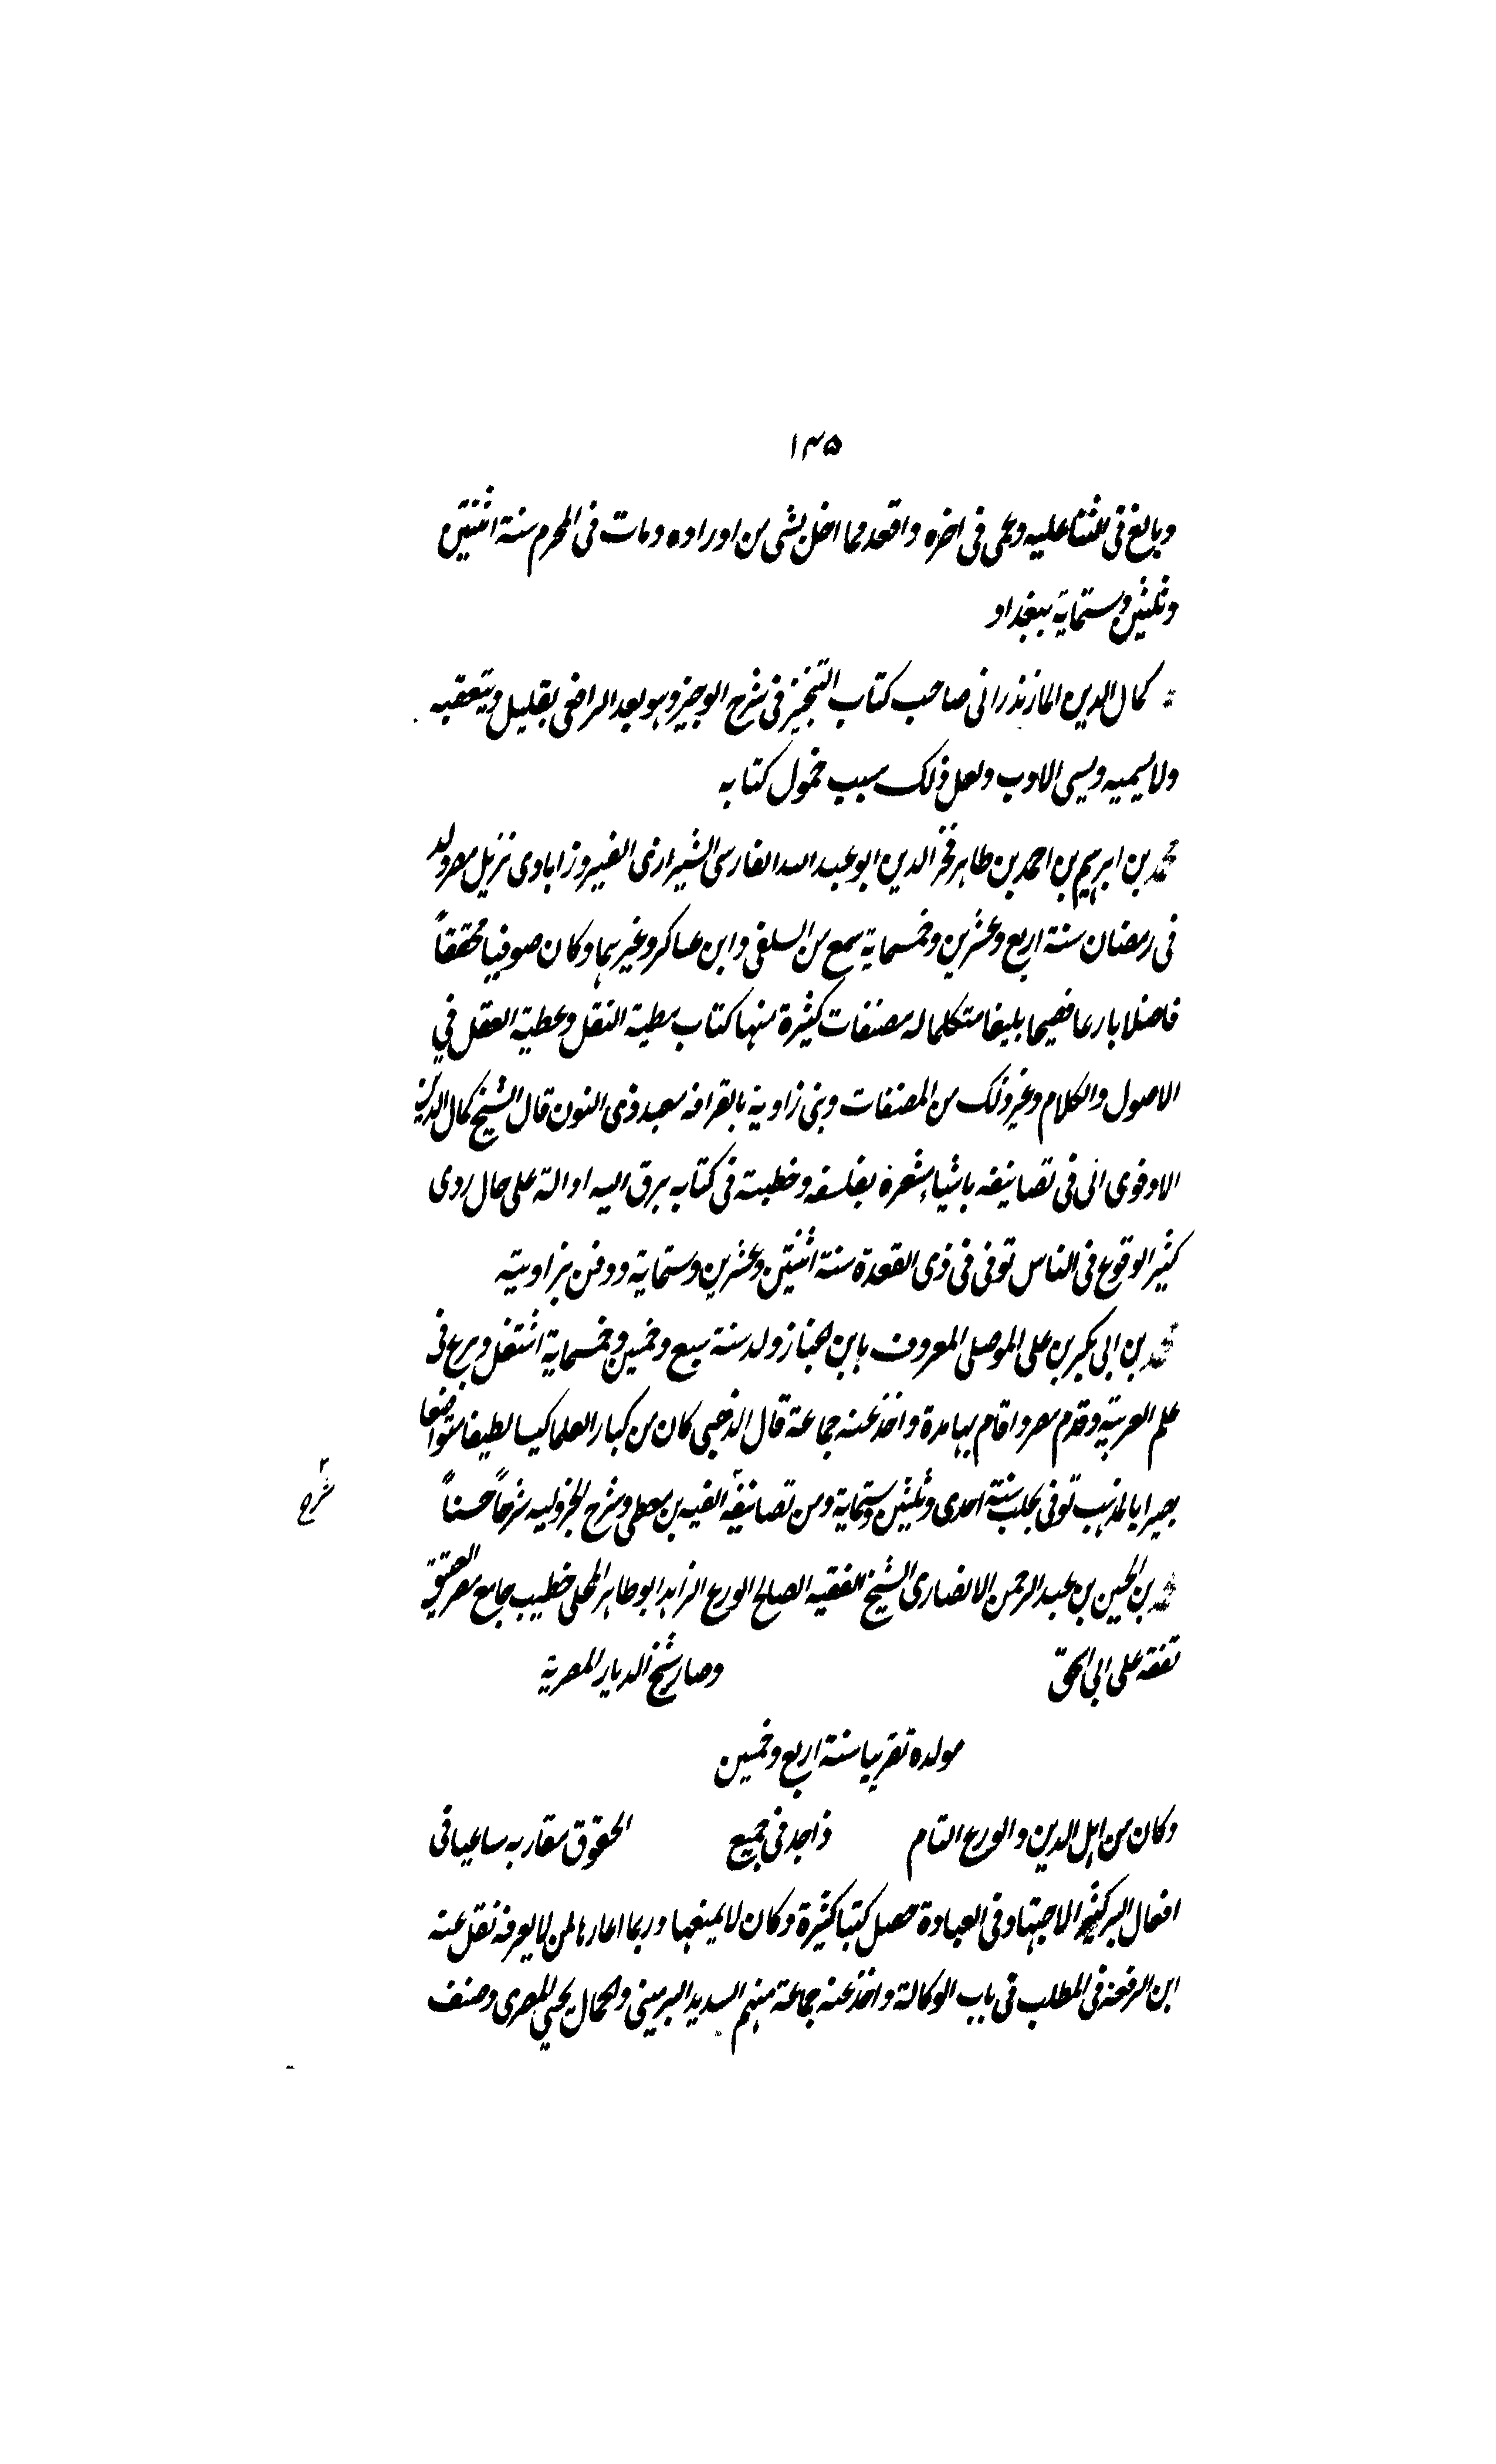 ۱۳۵
وبالغ فی الثنا علیه وعمی فی اخره واقعد وما اخل بشی من اوراده ومات فی المحرم سنة اثنتین
وثلثین وستمایة ببغداد
کمال الدین المازندرانی صاحب کتاب التنجیز فی شرح الوجیز وهو بعد الرافعی بقلیل ویتعقبه
ولا یسمیه ویسی الادب ولعل ذلک سبب خمول کتابه
محمد بن ابرهیم بن احمد بن طاهر فخر الدین ابو عبد الله الفارسی الشیرازی الفیروزابادی نزیل مصر ولد
فی رمضان سنة اربع وعشرین وخمسمایة سمع من السلفی وابن عساکر وغیرهما وکان صوفیا محققاً
فاضلا بارعا فصیحا بلیغا متکلما له مصنفات کثیرة منها کتاب مطیة النقل وعطیة العقل في
الاصول والکلام وغیر ذلک من المصنفات وبنی زاویة بالقرافه بمعبد ذی النون قال الشیخ کمال الدین
الادفوی اتی فی تصانیفه باشیاء مشعرة بفلسفه وخطبته فی کتابه برق الیه ادالة علی حال ردی
کثیر الوقوع فی الناس توفی فی ذی القعدة سنة اثنتین وعشرین وستمایة ودفن بزاویته
محمد بن ابی بکر بن علی الموصلی المعروف بابن الخباز ولد سنة سبع وخمسین وخمسمایة اشتغل وبرع فی
علم العربیة وقدم مصر واقام بها مدة واخذ عنه جماعة قال الذهبی کان من کبار العلما کیسا لطیفا متواضعا
بصیرا بالمذهب توفی بحلب سنة احدی وثلثین وستمایة ومن تصانیفه الفیه بن معطی وشرح الجزولیه شرحاً حسناً
۲ شرح
محمد بن الحسین بن عبد الرحمن الانصاری الشیخ الفقیه الصالح الورع الزاهد ابو طاهر المحلی خطیب جامع مصر العتیق
تفقه علی ابی اسحق وصار شیخ الدیار المصریة
مولده تقریبا سنة اربع وخمسین
وکان من اهل الدین والورع التام ذا جد فی جمیع الحقوق مقاربه ساعیا فی
افعال البر کثیر الاجتهاد فی العبادة حصل کتبا کثیرة وکان لا یمنعها وربما اعارها لمن لا یعرفه نقل عنه
ابن الرفعة فی المطلب فی باب الوکالة واخذ عنه جماعة منهم السدید التزمنتی والجمال یحیی المصری وصنف